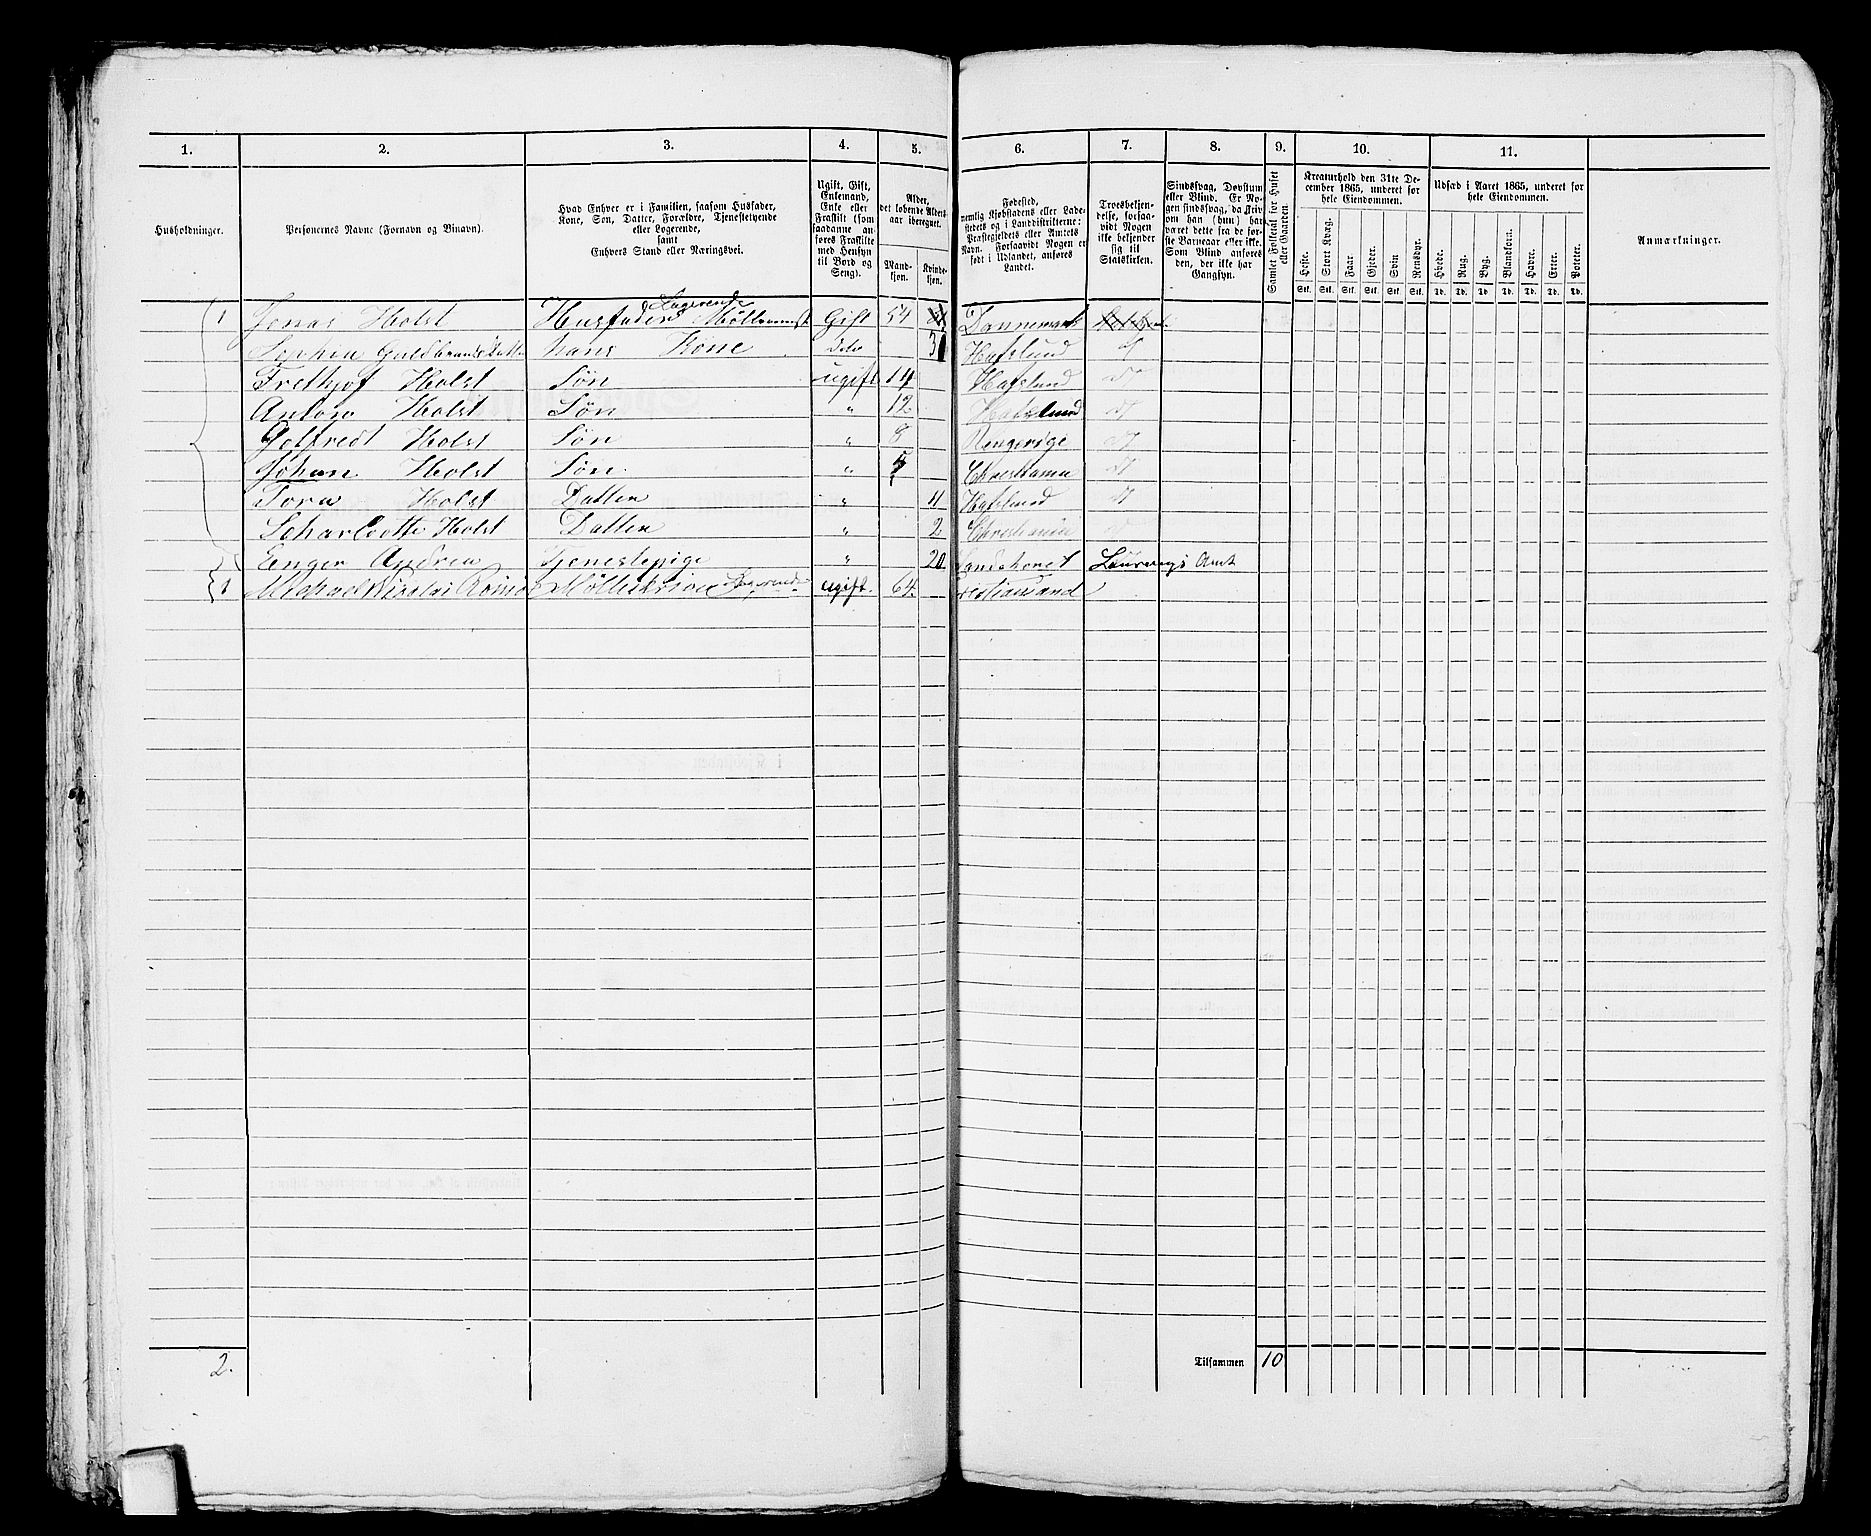 1. 2. 3. 4. 5. 6. 7. 8. 9. 10. 11.
Husholdninger.
Personernes Navne (Fornavn og Binavn).
Hvad Enhver er i Familien, saasom Husfader,
Kone, Søn, Datter, Forældre, Tjenestetyende
eller Logerende,
samt
Enhvers Stand eller Næringsvei.
Ugift, Gift,
Enkemand,
Enke eller
Fraskilt (som
saadanne an-
føres Fraskilte
med Hensyn
til Bord og
Seng).
Alder,
det løbende Alders-
aar iberegnet.
Mand-
kjøn.
Kvinde-
kjøn.
Fødested,
nemlig Kjøbstadens eller Lade-
stedets og i Landdistrikterne:
Præstegjeldets eller Amtets
Navn. Forsaavidt Nogen er
født i Udlandet, anføres
Landet.
Troesbekjen-
delse, forsaa-
vidt Nogen
ikke bekjender
sig til
Statskirken.
Sindssvag, Døvstum
eller Blind. Er No-
gen sindssvag, da hvor-
været dette fra de før-
ste Barneaar eller ikke.
Som Blind anføres
den, der ikke har
Gangsyn.
Gamlet Folketal for Huset
eller Gaarden.
Kreaturhold den 31te De-
cember 1865, underet for
hele Eiendommen.
Heste. Stort Kvæg. Faar. Gjeder. Svin Rensdyr.
Stk. Stk. Stk. Stk. Stk. Stk.
Udsæd i Aaret 1865, underet for
hele Eiendommen.
Hvede. Rug. Byg. Blandkorn. Havre. Erter. Poteter.
Td. Td. Td. Td. Td. Td. Td.
Anmærkninger.
1 Jonas Holst Husfader Logerende Gift 54 Dannemark
Sophia Guldbrandsdatter hans Kone Do Hafslund
Frethjof Holst Søn ugift 14 Hafslund
Anton Holst Søn " 12 Hafslund
Gotfredt Holst Søn " 8 Ringerige
Johan Holst Søn " Christiania
Tora Holst Datter " 11 Hafslund
Scharlotte Holst Datter " 2 Christiania
Enger Andrea Tjenestepige " 20 Laurvigs Amt
1 Michael Nicolai Logerende ugift. 64.
2. Tilsammen 10